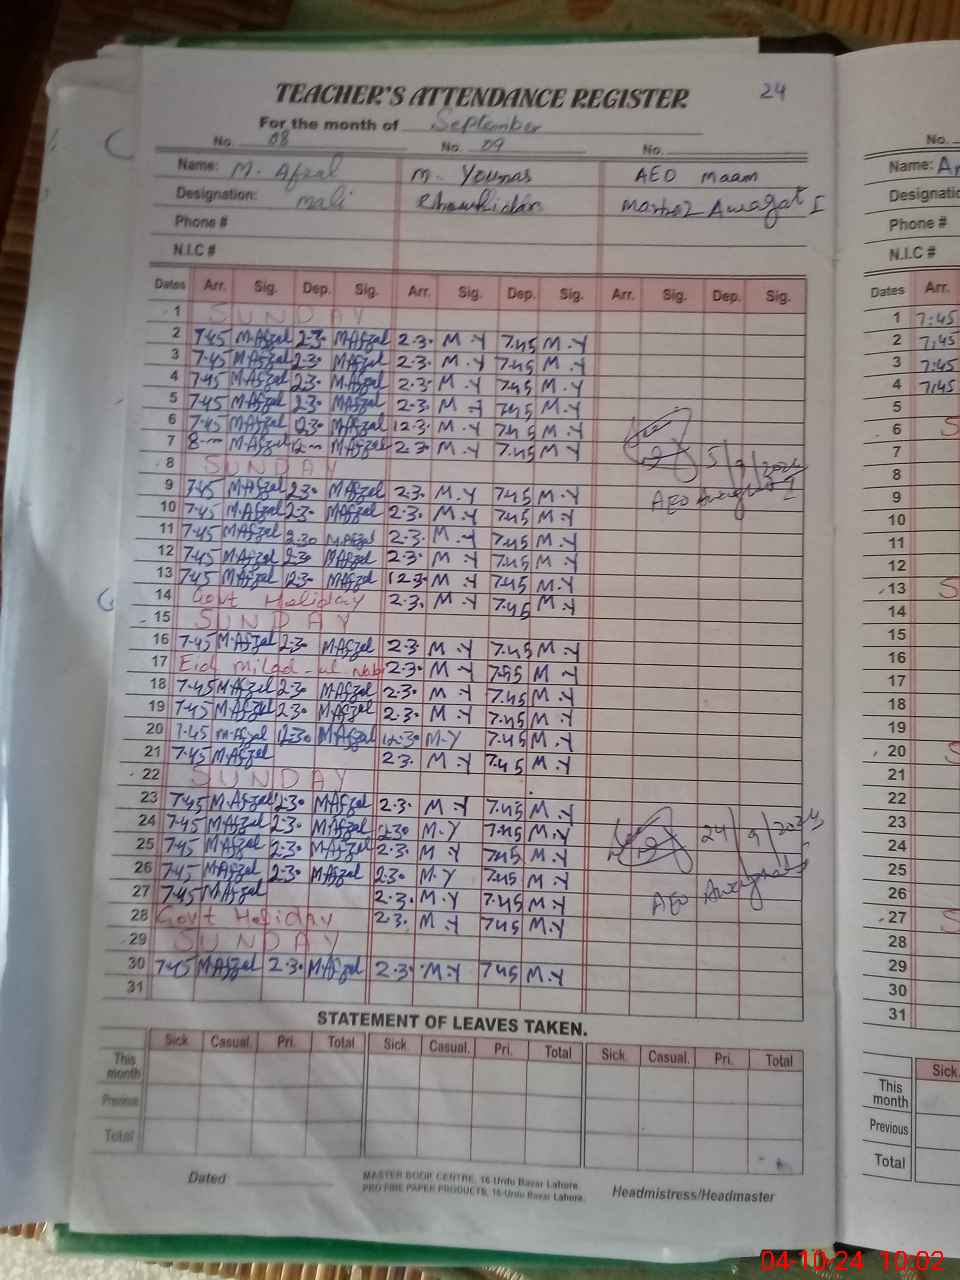 TEACHER'S ATTENDANCE REGISTER 24
For the month of September
No. 08 No. 09 No.
Name: M. Afzal M. Younas AEO Maam
Designation: Mali Chowkidar Markaz Awagat I
Phone #
N.I.C #
Dates Arr. Sig. Dep. Sig. Arr. Sig. Dep. Sig. Arr. Sig. Dep. Sig.
1 SUNDAY
2 7.45 M.Afzal 2.30 M.Afzal 2.30 M.Y 7.45 M.Y
3 7.45 M.Afzal 2.30 M.Afzal 2.30 M.Y 7.45 M.Y
4 7.45 M.Afzal 2.30 M.Afzal 2.30 M.Y 7.45 M.Y
5 7.45 M.Afzal 2.30 M.Afzal 2.30 M.Y 7.45 M.Y
6 7.45 M.Afzal 12.30 M.Afzal 12.30 M.Y 7.45 M.Y
7 8-00 M.Afzal 12-00 M.Afzal 2.30 M.Y 7.45 M.Y 5/9/2024
8 SUNDAY
9 7.45 M.Afzal 2.30 M.Afzal 2.30 M.Y 7.45 M.Y AEO Awagat I
10 7.45 M.Afzal 2.30 M.Afzal 2.30 M.Y 7.45 M.Y
11 7.45 M.Afzal 2.30 M.Afzal 2.30 M.Y 7.45 M.Y
12 7.45 M.Afzal 2.30 M.Afzal 2.30 M.Y 7.45 M.Y
13 7.45 M.Afzal 12.30 M.Afzal 12.30 M.Y 7.45 M.Y
14 Govt Holiday 2.30 M.Y 7.45 M.Y
15 SUNDAY
16 7.45 M.Afzal 2.30 M.Afzal 2.30 M.Y 7.45 M.Y
17 Eid Milad-ul Nabi 2.30 M.Y 7.45 M.Y
18 7.45 M.Afzal 2.30 M.Afzal 2.30 M.Y 7.45 M.Y
19 7.45 M.Afzal 2.30 M.Afzal 2.30 M.Y 7.45 M.Y
20 7.45 M.Afzal 12.30 M.Afzal 12.30 M.Y 7.45 M.Y
21 7.45 M.Afzal 2.30 M.Y 7.45 M.Y
22 SUNDAY
23 7.45 M.Afzal 2.30 M.Afzal 2.30 M.Y 7.45 M.Y
24 7.45 M.Afzal 2.30 M.Afzal 2.30 M.Y 7.45 M.Y 24/9/2024
25 7.45 M.Afzal 2.30 M.Afzal 2.30 M.Y 7.45 M.Y
26 7.45 M.Afzal 2.30 M.Afzal 2.30 M.Y 7.45 M.Y
27 7.45 M.Afzal 2.30 M.Y 7.45 M.Y AEO Awagat I
28 Govt Holiday 2.30 M.Y 7.45 M.Y
29 SUNDAY
30 7.45 M.Afzal 2.30 M.Afzal 2.30 M.Y 7.45 M.Y
31
STATEMENT OF LEAVES TAKEN.
Sick. Casual. Pri. Total Sick. Casual. Pri. Total Sick. Casual. Pri. Total
This month
Previous
Total
Dated
MASTER BOOK CENTRE, 16-Urdu Bazar Lahore.
PRO FINE PAPER PRODUCTS, 16-Urdu Bazar Lahore.
Headmistress/Headmaster
No.
Name:
Phone #
N.I.C #
Dates Arr.
1 7:45
2 7:45
3 7:45
4 7:45
5
6 S
7
8
9
10
11
12
13 S
14
15
16
17
18
19
20 S
21
22
23
24
25
26
27 S
28
29
30
31
Sick.
This month
Previous
Total
04-10-24 10:02